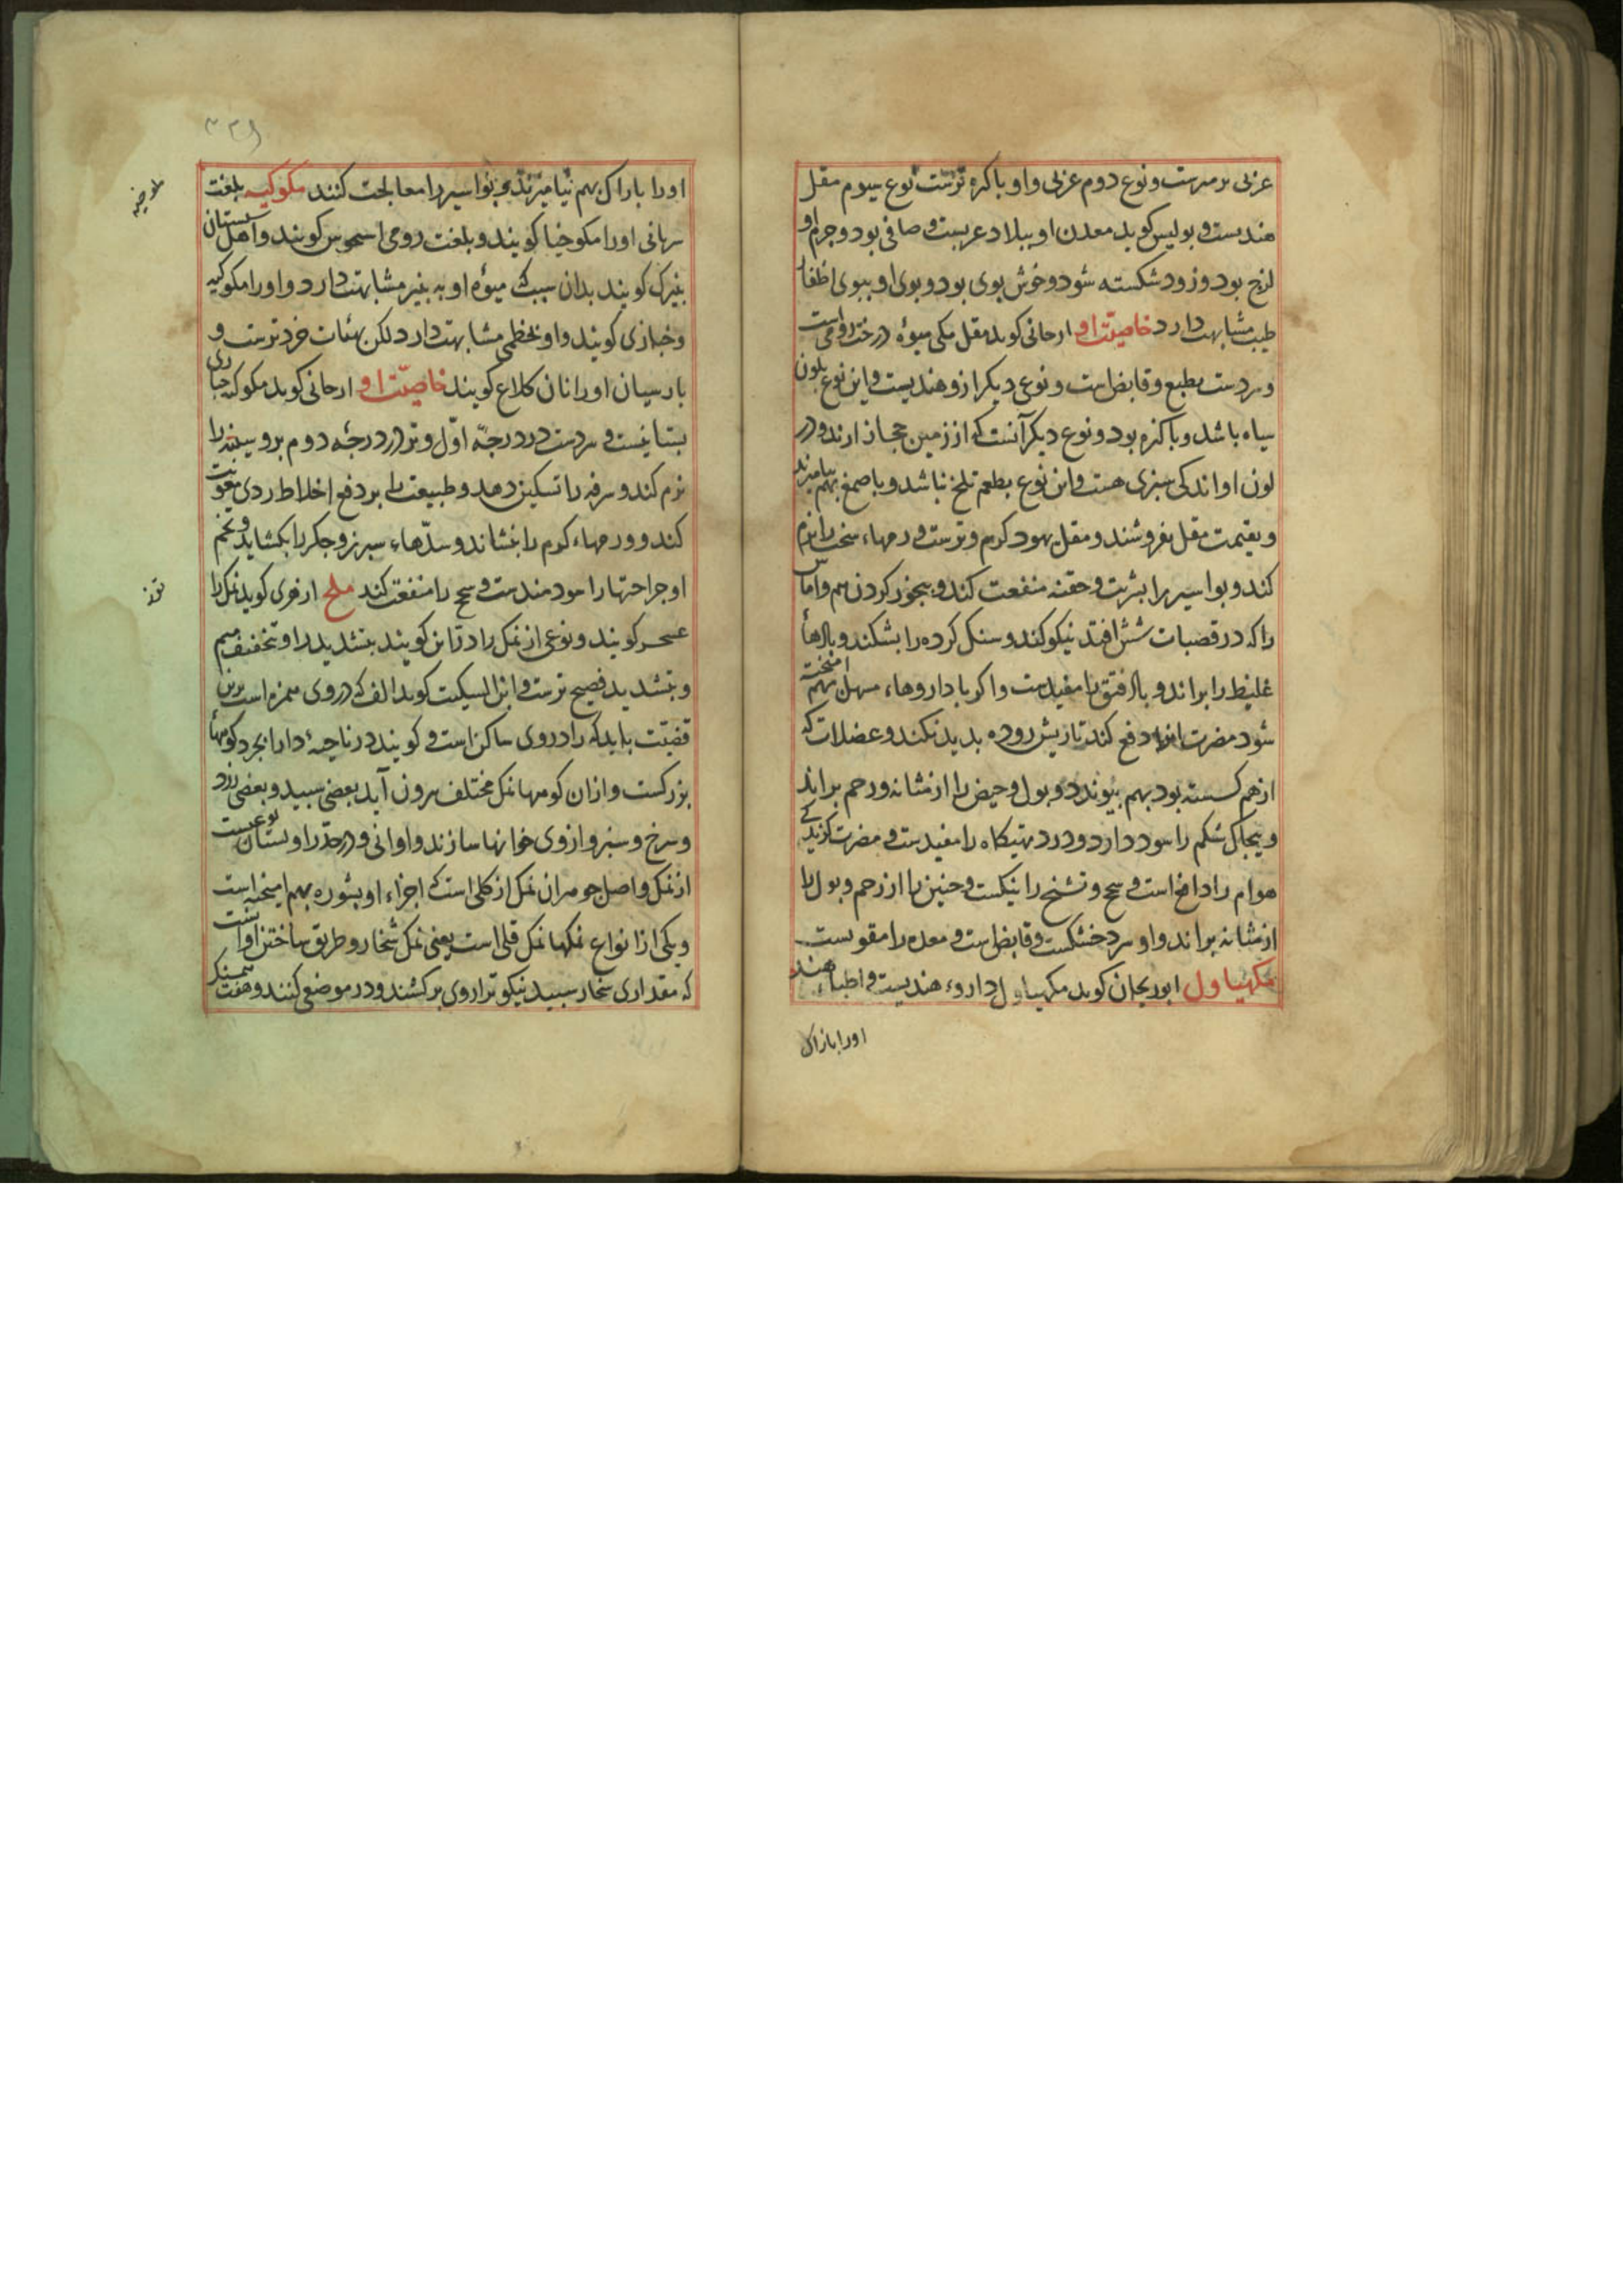 عربی برمرست و نوع دوم عربی و او باکره ترست نوع سیوم مقل
هندیست و بولیس کوید معدن او ببلاد عربست و صافی بود و جرم او
لزج بود و زود شکسته شود و خوش بوی بود و بوی او ببوی اظفار
طیب مشابهت دارد خاصیّت او ارجانی کوید مقل مکی میوۀ درخت
و سردست بطبع و قابض است و نوعی دیکر ازو هندیست و این نوع بلون
سیاه باشد و باکزه بود و نوع دیکر آنست که از زمین حجاز ارند و در
لون او اندکی سبزی هست و این نوع بطعم تلخ نباشد و با صمغ بهم بیامیزند
و بقیمت مقل بفروشند و مقل یهود کرم و ترست ورمهاء سخت را نرم
کند و بواسیر را بشربت و حقنه منفعت کند و ببخور کردن هم و اماس
را که در قصبات شش افتد نیکو کند و سنک کرده را بشکند و بادهأ
غلیظ را براند و باد فتق را مفیدست و اکر با داروهاء مسهل بهم امیخته
شود مضرت انرا دفع کند تا ریش روده بدید نکند و عضلات که
از هم کسسته بود بهم بیوندد و بول و حیض را از مثانه و رحم براند
و بیجاک شکم را سود دارد و درد تهیکاه را مفیدست و مضرت کزیدکی
هوام را دافع است و سحج و تشنج را نیکست و جنین را از رحم و بول را
از مثانه براند و او سرد خشکست و قابض است و معده را مقویست
مکهیاول ابوریحان کوید مکهیاول داروء هندیست و اطباء هند
اورا بازاک
اورا باراک بهم بیامیزند و بواسیر را معالجت کنند مکوکیه بلغت
سریانی اورا مکوخیا کویند و بلغت رومی اسموس کویند و اهل سیستان
بنیرک کویند بدان سبب که میوۀ او به بنیر مشابهت دارد و اورا مکوکیه
و خبازی کویند و او بخطمی مشابهت دارد لکن بهیئات خردترست و
بارسیان اورا نان کلاغ کویند خاصیّت او ارجانی کوید مکوکیه خبازی
بستانیست و سردست در درجۀ اوّل و تر در درجۀ دوم بر و سینه را
نرم کند و سرفه را تسکین دهد و طبیعت را بر دفع اخلاط ردی معونت
کند و ورمهاء کرم را بنشاند و سدّهاء سبرز و جکر را بکشاید و تخم
او جراحتها را سودمندست و سحج را منفعت کند ملح ازهری کوید نمک را
کویند و نوعی از نمک را درّانی کویند بتشدید را و تخفیف هم
و بتشدید فصیح ترست و ابن السکیت کوید الف که در وی همزه است برین
قضیّت باید که را در وی ساکن است و کویند در ناحیۀ دارابجرد کوهها
بزرکست و ازان کوهها نمک مختلف برون آید بعضی سبید و بعضی زرد
و سرخ و سبز و از وی خوانها سازند و اوانی و در حدّ راوستان نوعیست
از نمک و اصل جوهر ان نمک از کلی است که اجزاء او بشوره بهم امیخته است
و یکی از انواع نمکها نمک قلی است یعنی نمک شخار و طریق ساختن او انست
که مقداری شخار سبید نیکو ترازوی برکشند و در موضعی کنند و هفت
ملوخیه